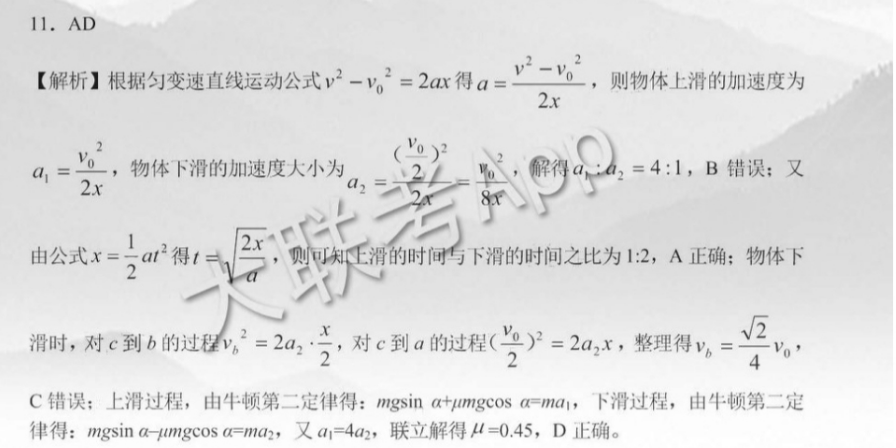 11．AD
【解析】根据匀变速直线运动公式 v² − v₀² = 2ax 得 a = (v² − v₀²)/(2x)，则物体上滑的加速度为
a₁ = v₀²/(2x)，物体下滑的加速度大小为 a₂ = (v₀/2)²/(2x) = v₀²/(8x)，解得 a₁ : a₂ = 4 : 1，B 错误；又
由公式 x = (1/2)at² 得 t = √(2x/a)，则可知上滑的时间与下滑的时间之比为 1:2，A 正确；物体下
滑时，对 c 到 b 的过程 v_b² = 2a₂ · x/2，对 c 到 a 的过程 (v₀/2)² = 2a₂x，整理得 v_b = (√2/4)v₀，
C 错误；上滑过程，由牛顿第二定律得：mgsin α+μmgcos α=ma₁，下滑过程，由牛顿第二定
律得：mgsin α–μmgcos α=ma₂，又 a₁=4a₂，联立解得 μ=0.45，D 正确。
大联考App